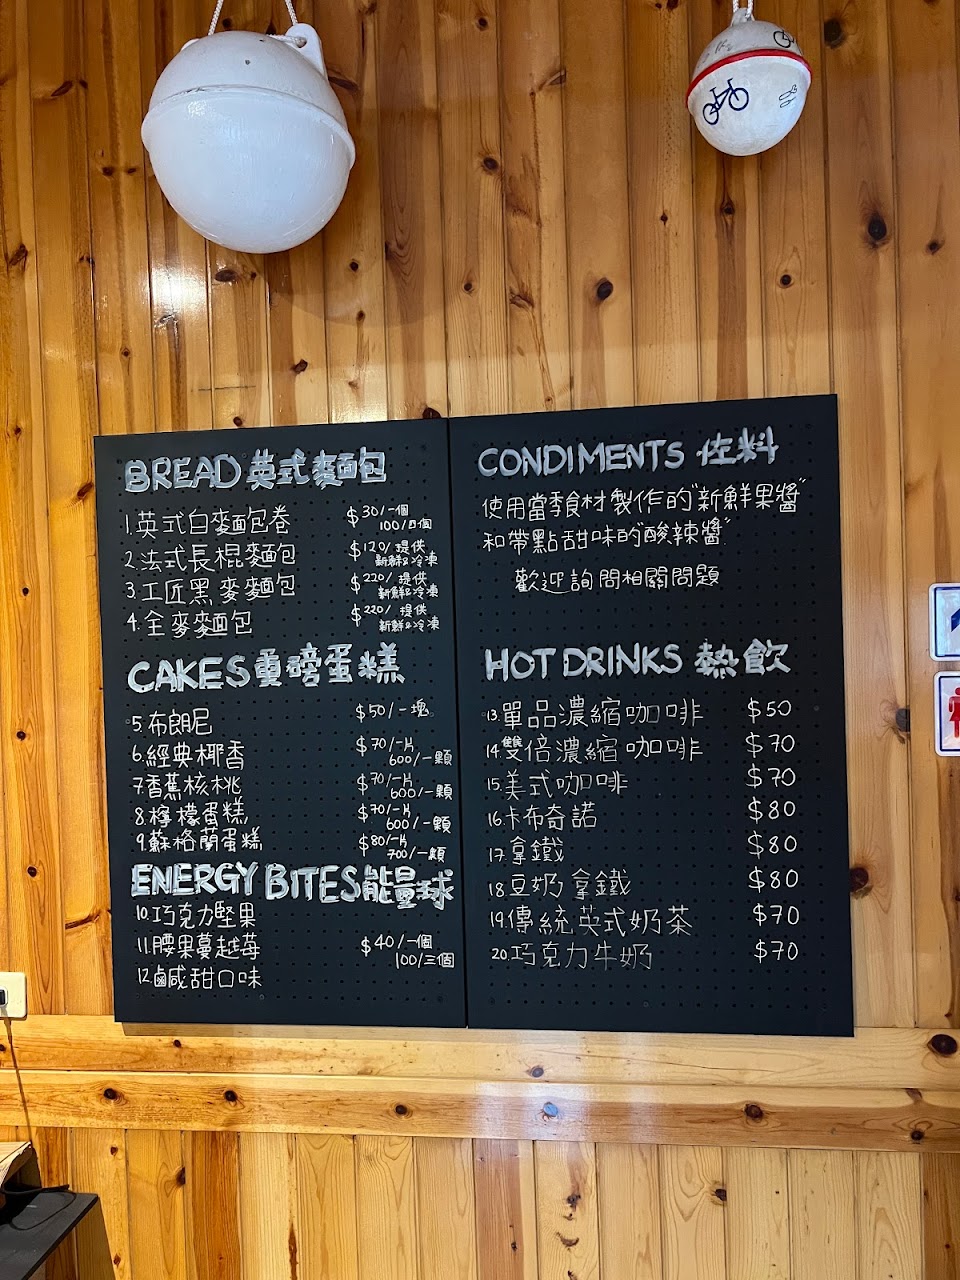 BREAD 英式麵包
1.英式白麵包卷 $30/一個
100/四個
2.法式長棍麵包 $120/提供
新鮮&冷凍
3.工匠黑麥麵包 $220/提供
新鮮&冷凍
4.全麥麵包 $220/提供
新鮮&冷凍
CAKES 重磅蛋糕
5.布朗尼 $50/一塊
6.經典椰香 $70/一片
600/一顆
7.香蕉核桃 $70/一片
600/一顆
8.檸檬蛋糕 $70/一片
600/一顆
9.蘇格蘭蛋糕 $80/一片
700/一顆
ENERGY BITES 能量球
10.巧克力堅果
11.腰果蔓越莓 $40/一個
100/三個
12.鹹甜口味
CONDIMENTS 佐料
使用當季食材製作的"新鮮果醬"
和帶點甜味的"酸辣醬"
歡迎詢問相關問題
HOT DRINKS 熱飲
13.單品濃縮咖啡 $50
14.雙倍濃縮咖啡 $70
15.美式咖啡 $70
16.卡布奇諾 $80
17.拿鐵 $80
18.豆奶拿鐵 $80
19.傳統英式奶茶 $70
20.巧克力牛奶 $70